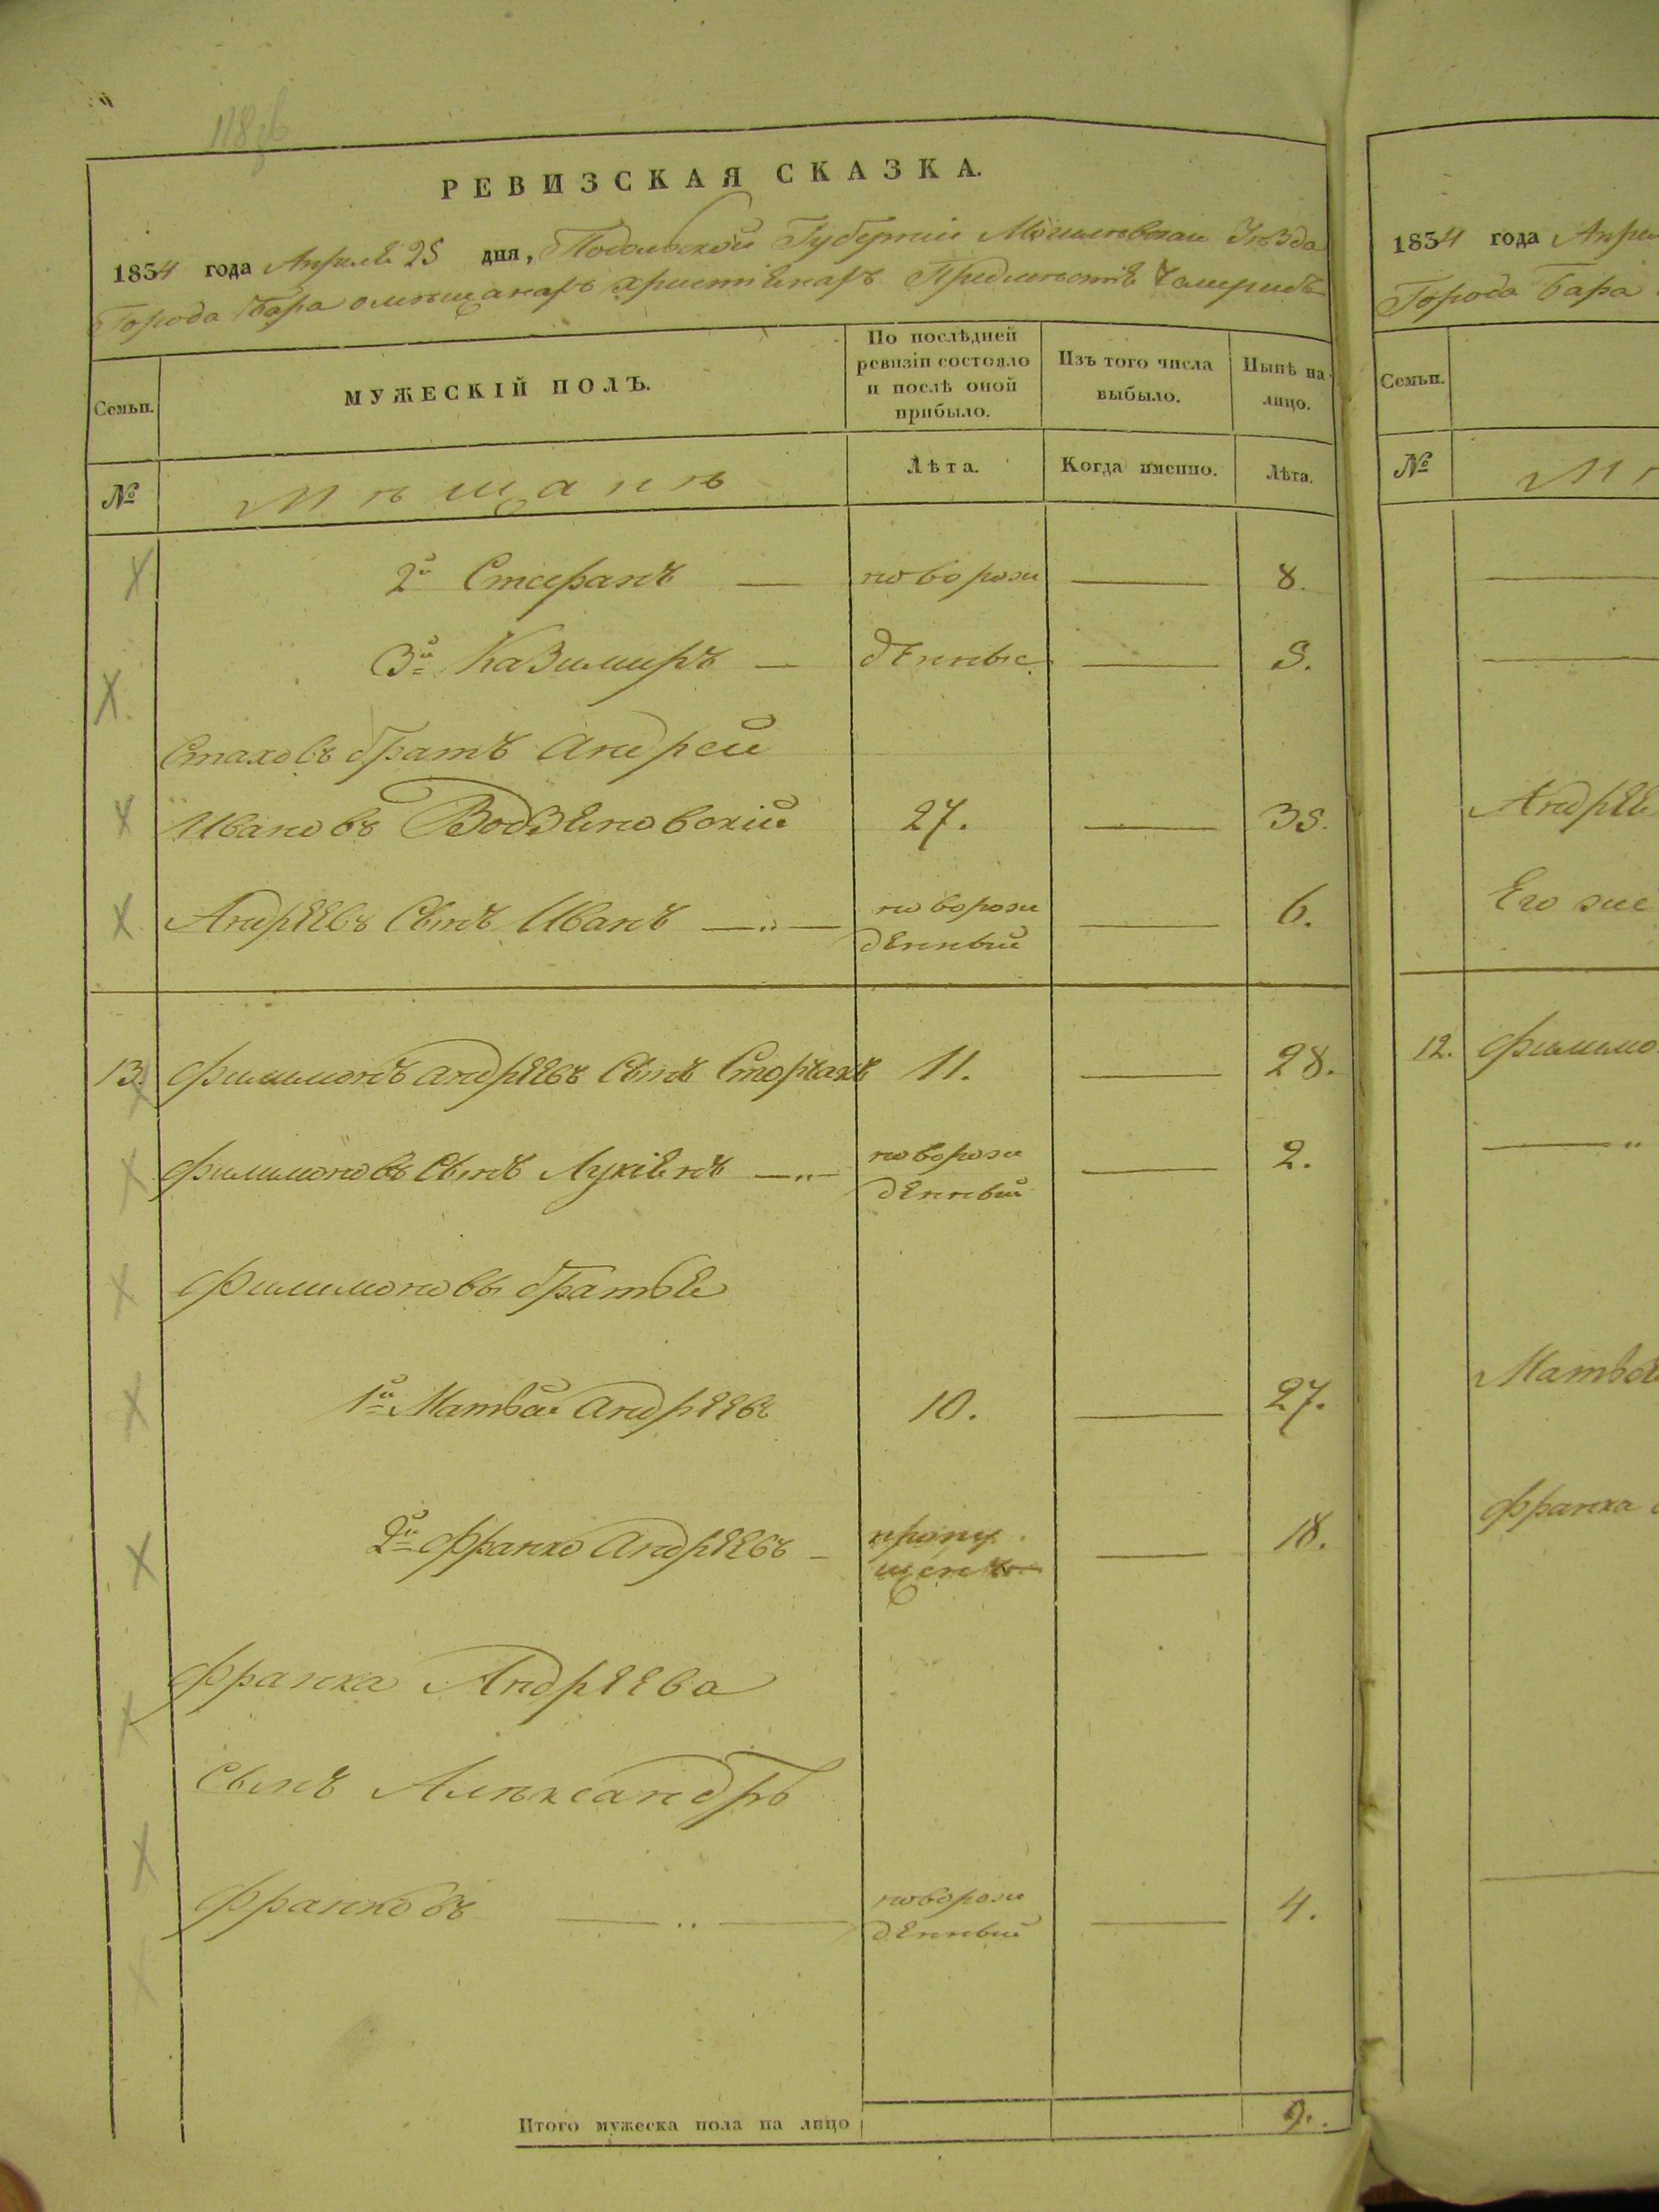 118 об
РЕВИЗСКАЯ СКАЗКА.
1834 года Апреля 25 дня, Подольской Губернии Могилевскаго Уезда
Города Бара о мѣщанахъ христіянахъ Предместія
Семьи.
МУЖЕСКІЙ ПОЛЪ.
По послѣдней ревизіи состояло и послѣ оной прибыло.
Изъ того числа выбыло.
Нынѣ на лицо.
№
Мѣщанѣ
Лѣта.
Когда именно.
Лѣта.
2й Стефанъ — новорож — 8.
3й Казимиръ — денные — 5.
Стаховъ братъ Андрей
Ивановъ Водзяновскій 27. — 35.
Андреевъ Сынъ Иванъ —„— новорож денный — 6.
13. Филимонъ Андреевъ Сынъ 11. — 28.
Филимоновъ Сынъ Лукіянъ —„— новорож денный — 2.
Филимоновы братья
1й Матвѣй Андреевъ 10. — 27.
2й Франко Андреевъ — пропу щенъ — 18.
Франка Андреева
Сынъ Алѣксандръ
Франковъ — „ — новорож денный — 4.
Итого мужеска пола на лицо 9.
1834 года
Города Бара
Семьи.
№
Его же
12.
Франка